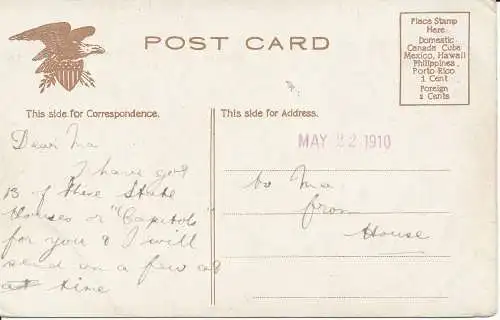 POST CARD
Place Stamp
Here
Domestic
Canada Cuba
Mexico, Hawaii
Philippines,
Porto Rico
1 Cent
Foreign
2 Cents
This side for Correspondence.
This side for Address.
MAY 22 1910
Dear Ma
I have got
13 of these State
Houses or "Capitols"
for you & I will
send on a few
at time
to Ma
from
House